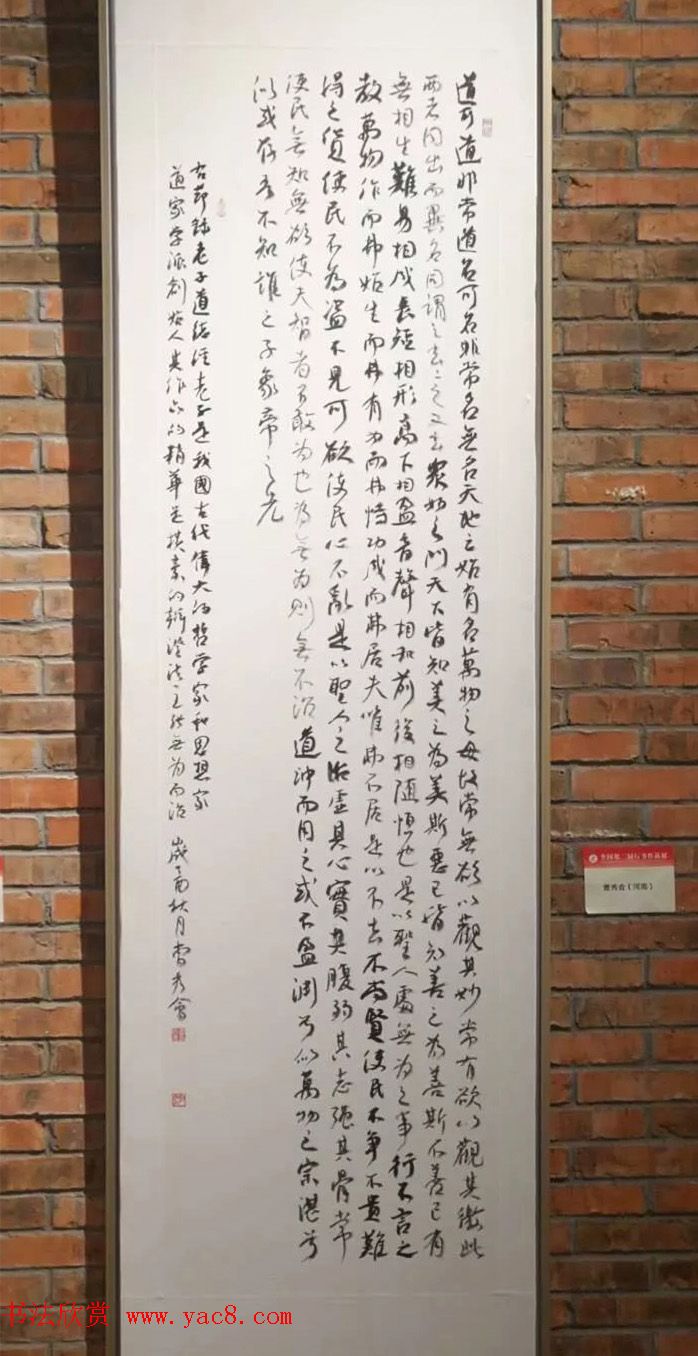 道可道非常道名可名非常名無名天地之始有名萬物之母故常無欲以觀其妙常有欲以觀其徼此
兩者同出而異名同謂之玄玄之又玄眾妙之門天下皆知美之為美斯惡已皆知善之為善斯不善已有
無相生難易相成長短相形高下相盈音聲相和前後相隨恒也是以聖人處無為之事行不言之
教萬物作而弗始生而弗有為而弗恃功成而弗居夫唯弗居是以不去不尚賢使民不爭不貴難
得之貨使民不為盜不見可欲使民心不亂是以聖人之治虛其心實其腹弱其志強其骨常
使民無知無欲使夫智者不敢為也為無為則無不治道沖而用之或不盈淵兮似萬物之宗湛兮
似或存吾不知誰之子象帝之先
右節錄老子道德經老子是我國古代偉大的哲學家和思想家
道家學派創始人其作品的精華是樸素的辯證法主張無為而治 歲 秋月 秀會
全国第三届行书作品展
秀会（河南）
书法欣赏 www.yac8.com